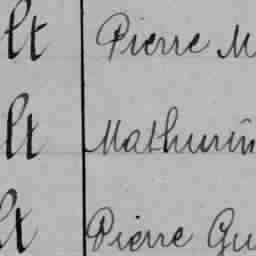 lt Pierre M
lt Mathurin
lt Pierre Gu